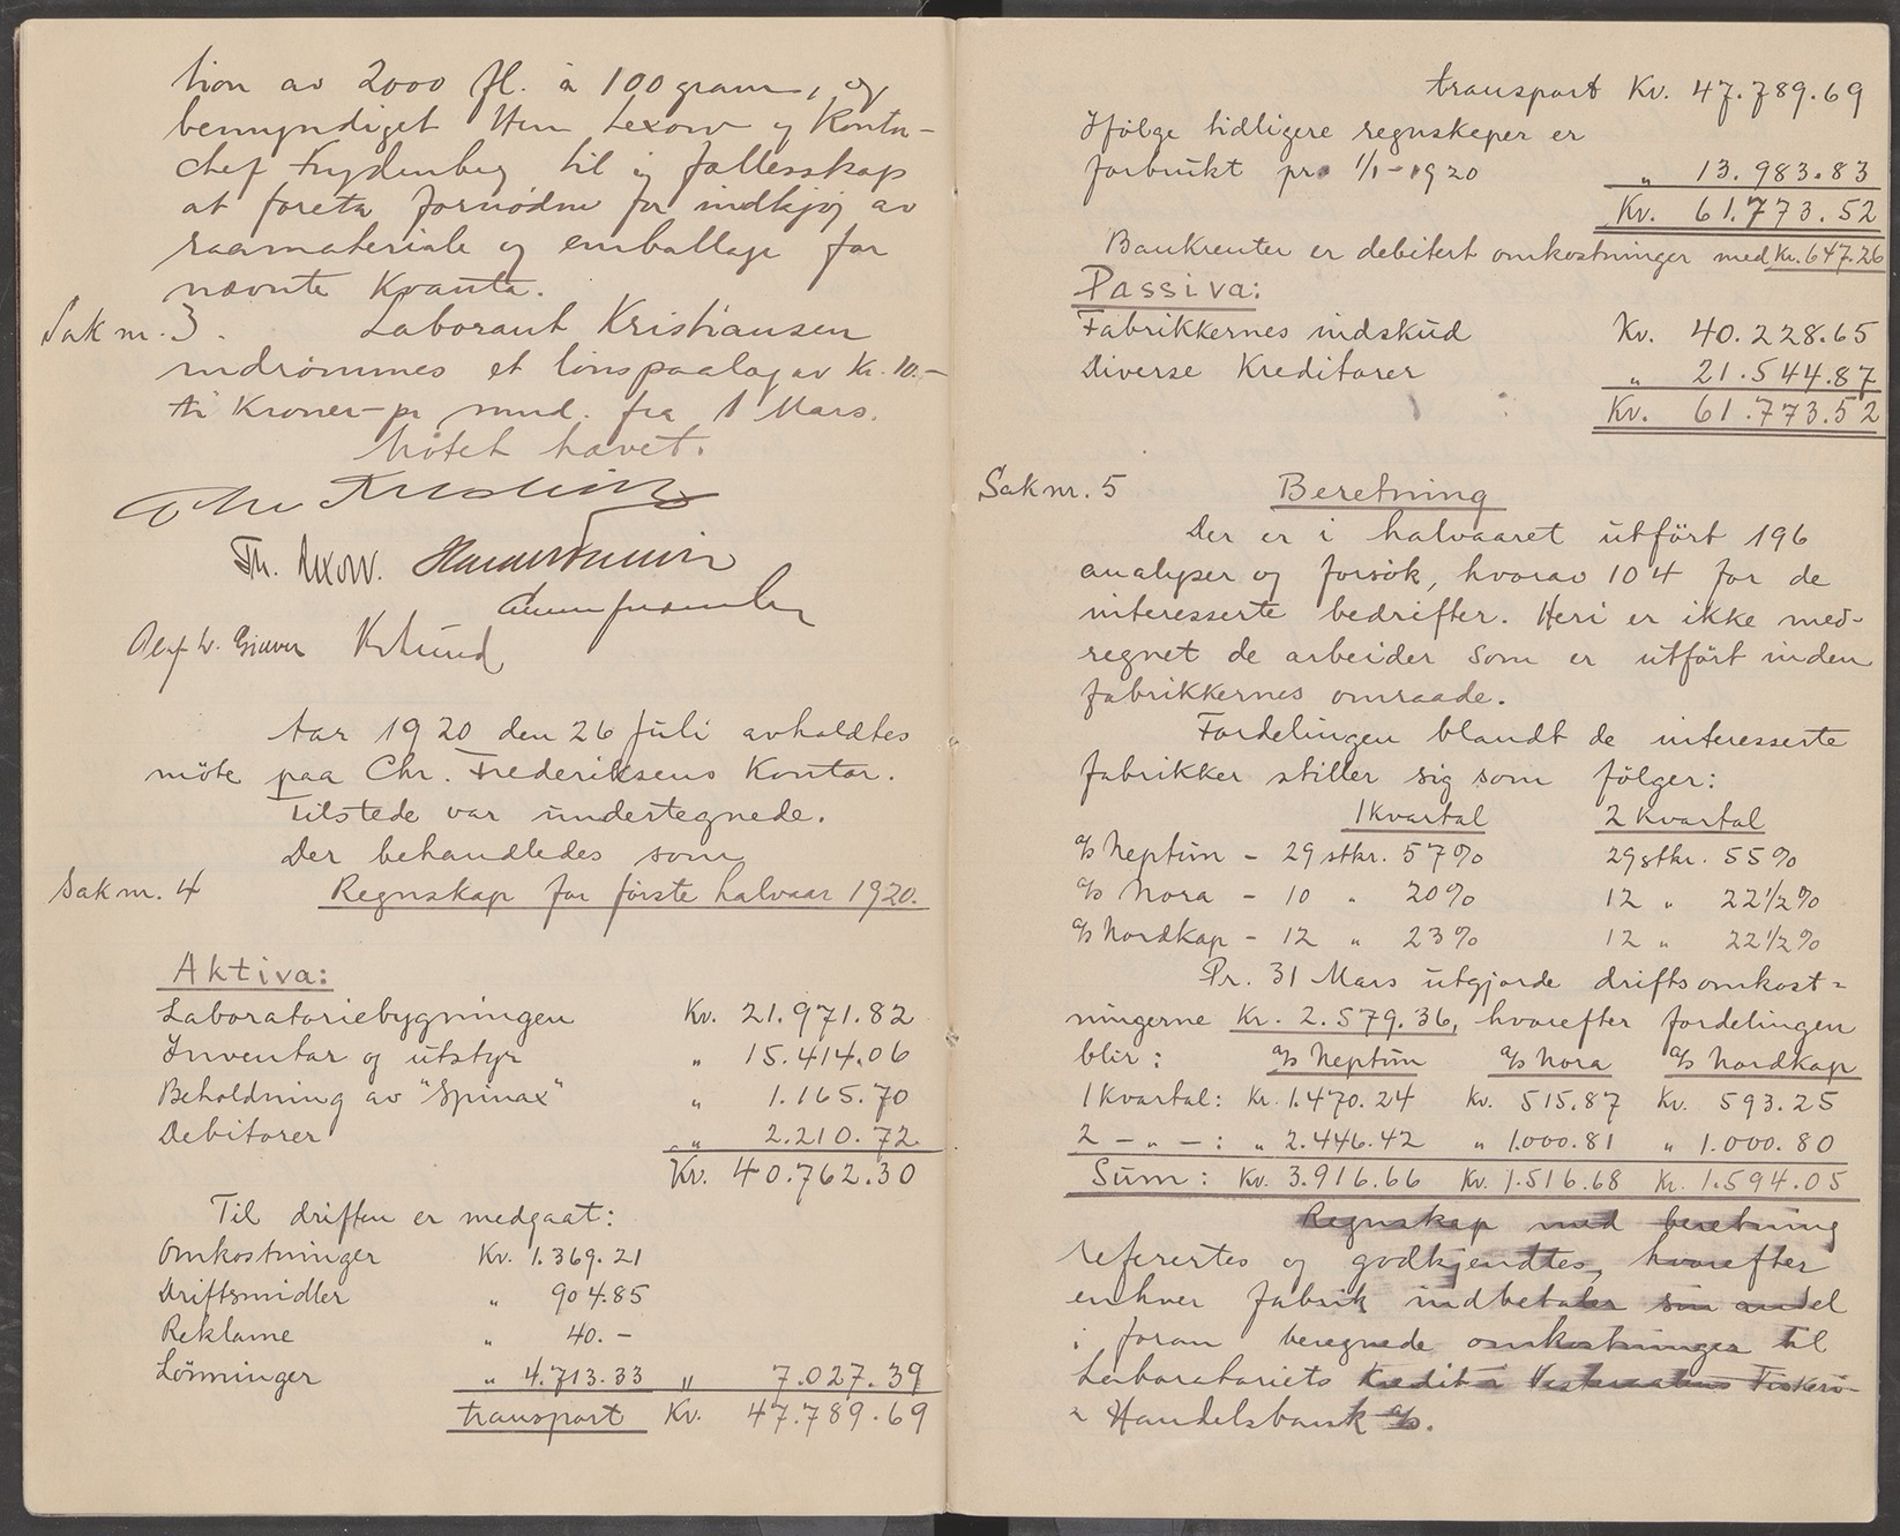 tion av 2000 fl. à 100 gram, og
bemyndiget Herr Lexow og Kontor-
chef Frydenberg til i fællesskap
at foreta fornödne for indkjöp av
raamateriale og emballage for
nævnte Kvanta.
Sak nr. 3. Laborant Kristiansen
indrömmes et lönspaalag av Kr. 10.-
ti Kroner - pr mnd. fra 1 Mars.
Mötet hævet.
Th. Lexow.
Olaf W. Giæver K. Lund
Aar 1920 den 26 Juli avholdtes
möte paa Chr. Frederiksens Kontor.
Tilstede var undertegnede.
Der behandledes som
Sak nr. 4 Regnskap for förste halvaar 1920.
Aktiva:
Laboratoriebygningen Kr. 21.971.82
Inventar og utstyr " 15.414.06
Beholdning av "Spinax" " 1.165.70
Debitorer " 2.210.72
Kr. 40.762.30
Til driften er medgaat:
Omkostninger Kr. 1.369.21
Driftsmidler " 904.85
Reklame " 40.-
Lönninger " 4.713.33 " 7.027.39
transport Kr. 47.789.69
transport Kr. 47.789.69
Ifölge tidligere regnskaper er
forbrukt pr. 1/1-1920 " 13.983.83
Kr. 61.773.52
Bankrenter er debitert omkostninger med Kr. 647.26
Passiva:
Fabrikkernes indskud Kr. 40.228.65
Diverse Kreditorer " 21.544.87
Kr. 61.773.52
Sak nr. 5 Beretning
Der er i halvaaret utfört 196
analyser og forsök, hvorav 104 for de
interesserte bedrifter. Heri er ikke med-
regnet de arbeider som er utfört inden
fabrikkernes omraade.
Fordelingen blandt de interesserte
fabrikker stiller sig som fölger:
1 Kvartal 2 Kvartal
a/s Neptun - 29 stkr. 57% 29 stkr. 55%
a/s Nora - 10 " 20% 12 " 22 1/2%
a/s Nordkap - 12 " 23% 12 " 22 1/2%
Pr. 31 Mars utgjorde driftsomkost=
ningerne Kr. 2.579.36, hvorefter fordelingen
blir: a/s Neptun a/s Nora a/s Nordkap
1 Kvartal: Kr. 1.470.24 Kr. 515.87 Kr. 593.25
2 - " - : " 2.446.42 " 1.000.81 " 1.000.80
Sum: Kr. 3.916.66 Kr. 1.516.68 Kr. 1.594.05
Regnskap med beretning
refertes og godkjendtes, hvorefter
enhver fabrik indbetaler sin andel
i foran beregnede omkostninger til
Laboratoriets Kredit i Vesteraalens Fiskeri-
& Handelsbank a/s.